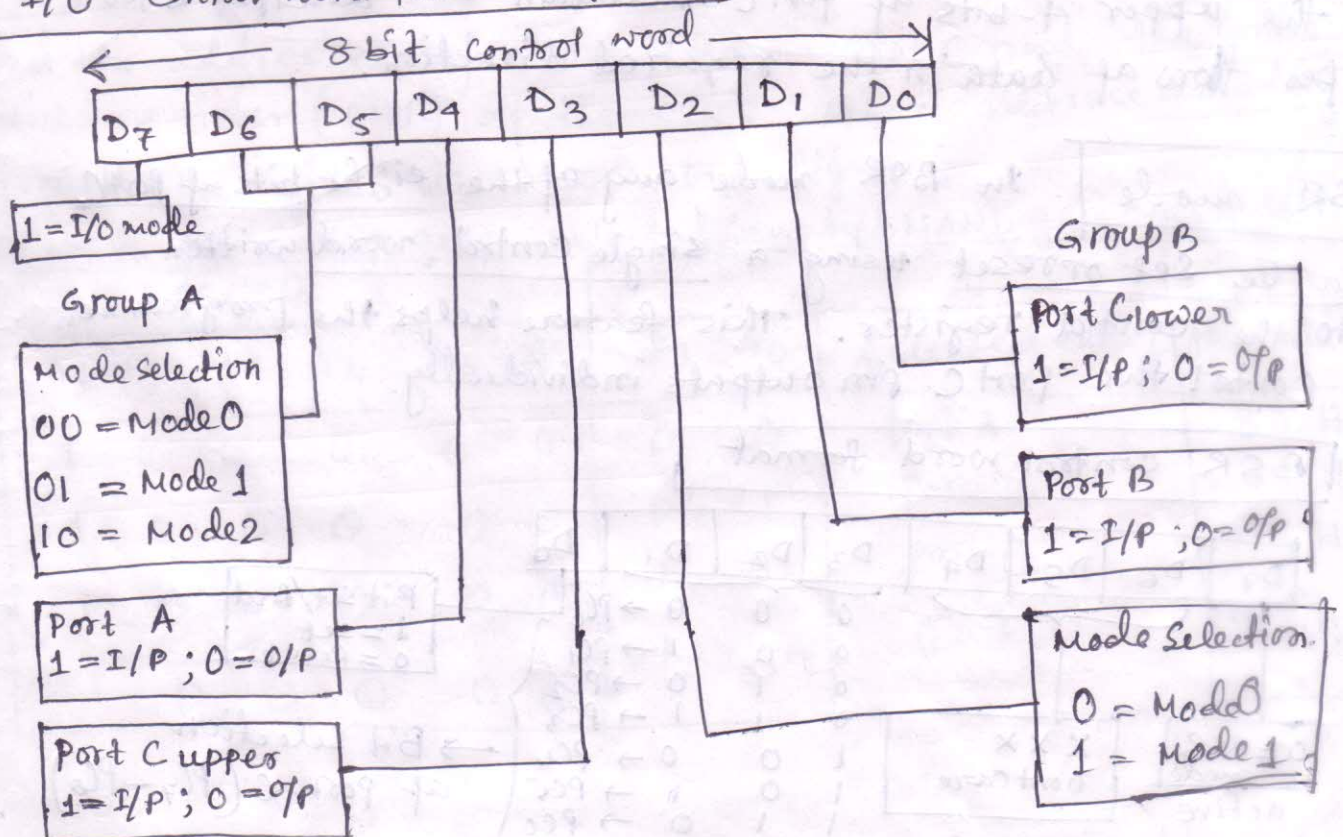 8 bit control word
D7 D6 D5 D4 D3 D2 D1 D0
1 = I/O mode
Group A
Mode selection
00 = Mode 0
01 = Mode 1
10 = Mode 2
Port A
1 = I/P ; 0 = O/P
Port C upper
1 = I/P ; 0 = O/P
Group B
Port C lower
1 = I/P ; 0 = O/P
Port B
1 = I/P ; 0 = O/P
Mode Selection.
0 = Mode 0
1 = Mode 1